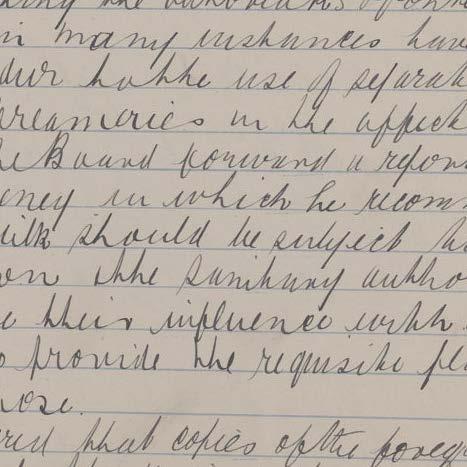 in many instances hav
dur to the use of separat
creameries in the affect
he Board forward a repor
ency in which he recom
ilk should be subject to
on the sanitary autho
e their influence with
o provide the requisite pl
nose.
red that copies of the foreg